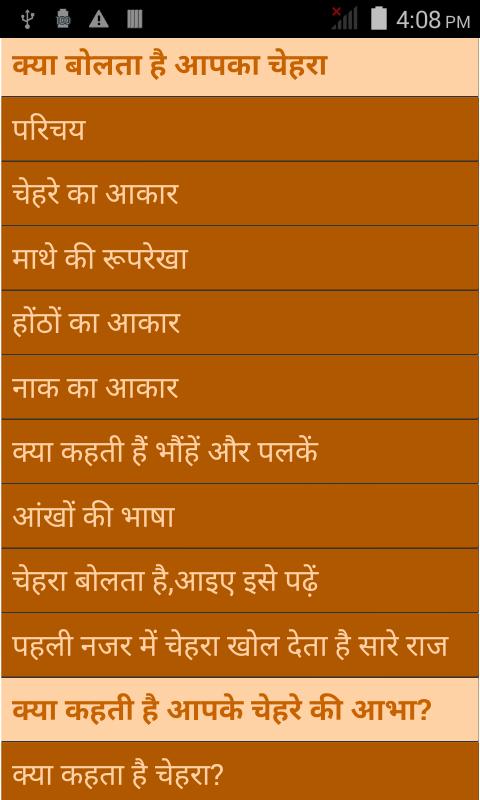 4:08 PM
क्या बोलता है आपका चेहरा
परिचय
चेहरे का आकार
माथे की रूपरेखा
होंठों का आकार
नाक का आकार
क्या कहती हैं भौंहें और पलकें
आंखों की भाषा
चेहरा बोलता है,आइए इसे पढ़ें
पहली नजर में चेहरा खोल देता है सारे राज
क्या कहती है आपके चेहरे की आभा?
क्या कहता है चेहरा?